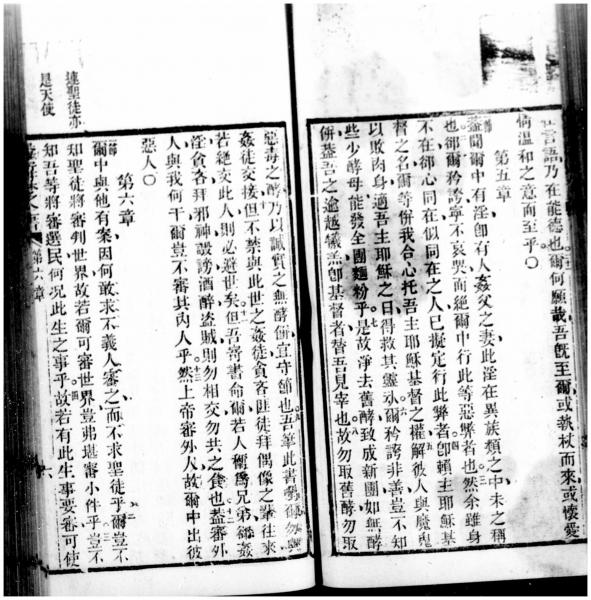 言語乃在能德也爾何願哉吾旣至爾或執杖而來或懷愛
情溫和之意而至乎〇
第五章
葢聞爾中有淫卽有人姦父之妻此淫在異族類之中未之稱
也郤爾矜誇寧不哀哭而絕爾中行此等惡弊者也然余雖身
不在郤心同在似同在之人已擬定行此弊者卽賴主耶穌基
督之名爾等併我合心托吾主耶穌基督之權解彼人與魔鬼
以敗肉身適吾主耶穌之日得救其靈永爾矜誇非善豈不知
些少酵母能發全團麵粉乎是故淨去舊酵致成新團如無酵
併葢吾之逾越犧羔卽基督者替吾見宰也故勿取舊酵勿取
惡毒之酵乃以誠實之無酵併宜守節也吾筆此書勸爾勿與
姦徒交接但不禁與此世之姦徒貪吝匪徒拜偶像之輩往來
若絕交此人則必避世矣但吾書命爾若人稱爲兄弟雖姦
淫貪吝拜邪神毀謗酒醉盜賊則勿相交勿共之食也葢審外
人與我何干爾豈不審其內人乎然上帝審外人故爾中出彼
惡人〇
第六章
爾中與他有案因何敢求不義人審之而不求聖徒乎爾豈不
知聖徒將審判世界故若爾可審世界豈弗堪審小件乎豈不
知吾等將審選民何况此生之事乎故若有此生事要審可使
第六章
六
連聖徒亦
是天使